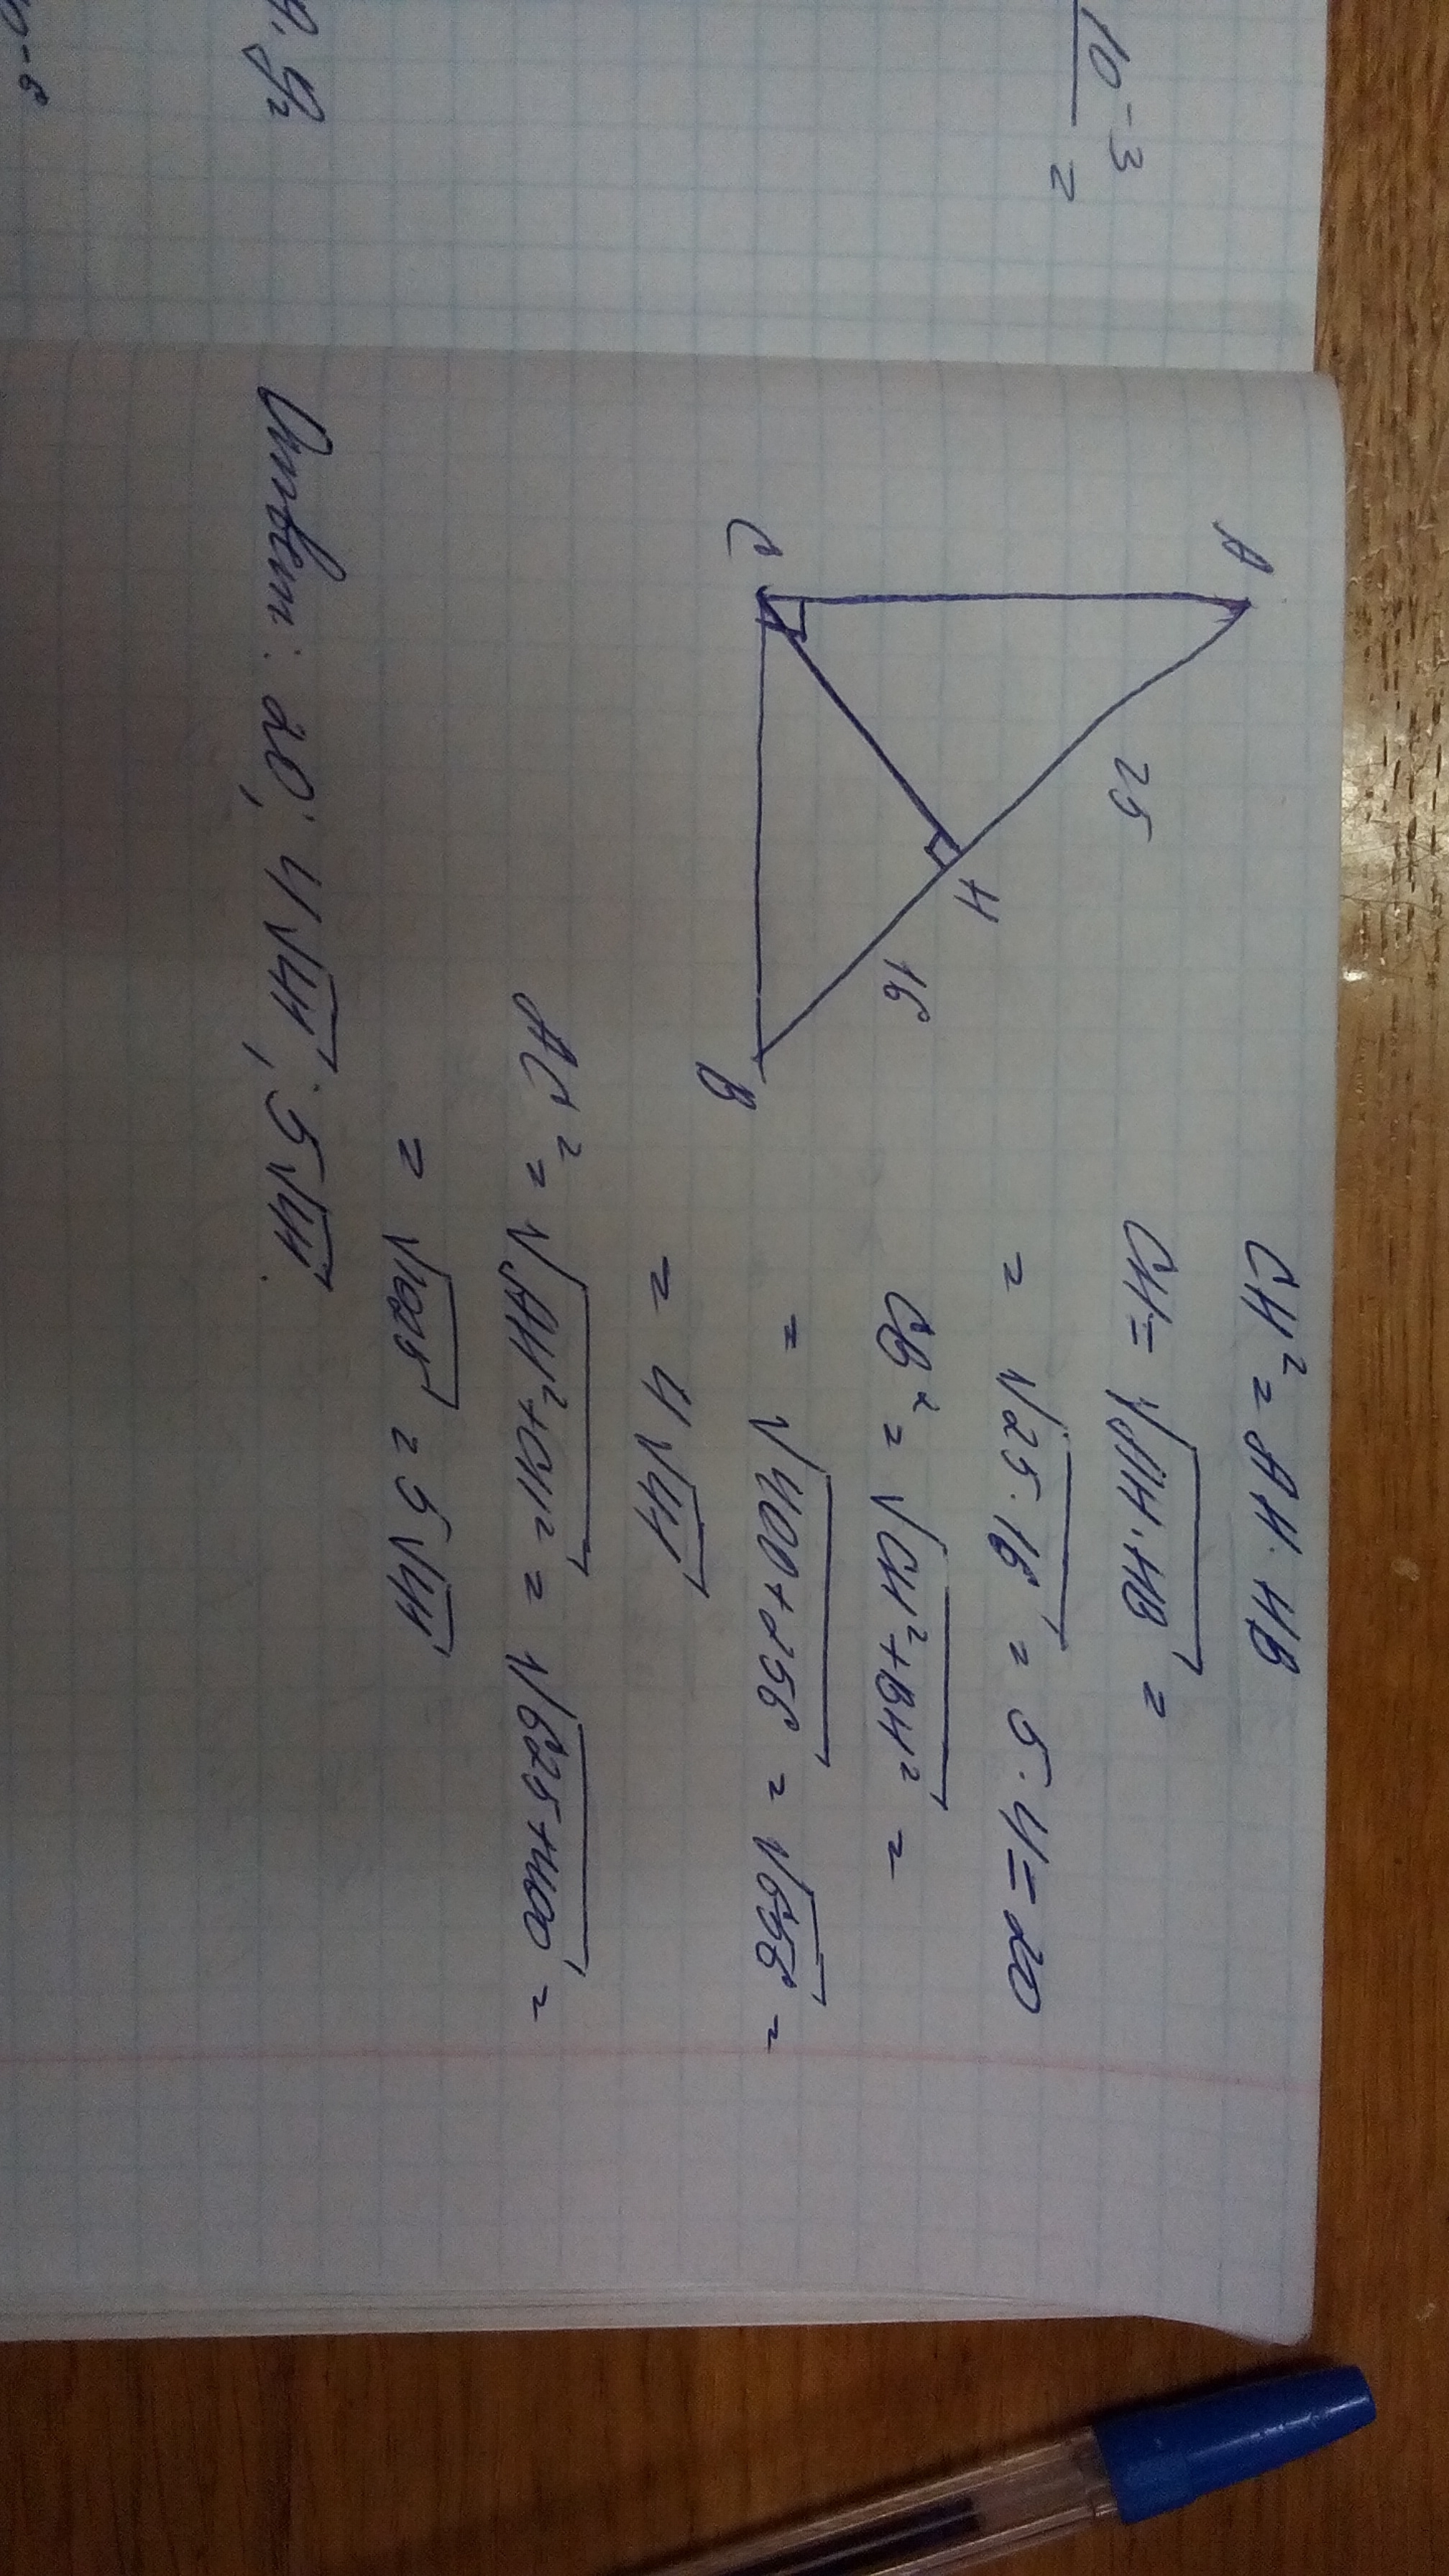 10⁻³
2
y. y₂
10⁻⁶
A
25
H
16
C
B
CH² = AH·HB
CH = √AH·HB =
= √25·16 = 5·4 = 20
CB² = √CH²+BH² =
= √400+256 = √656 =
= 4√41
AC² = √AH²+CH² = √625+400 =
= √1025 = 5√41
Ответ: 20; 4√41; 5√41.